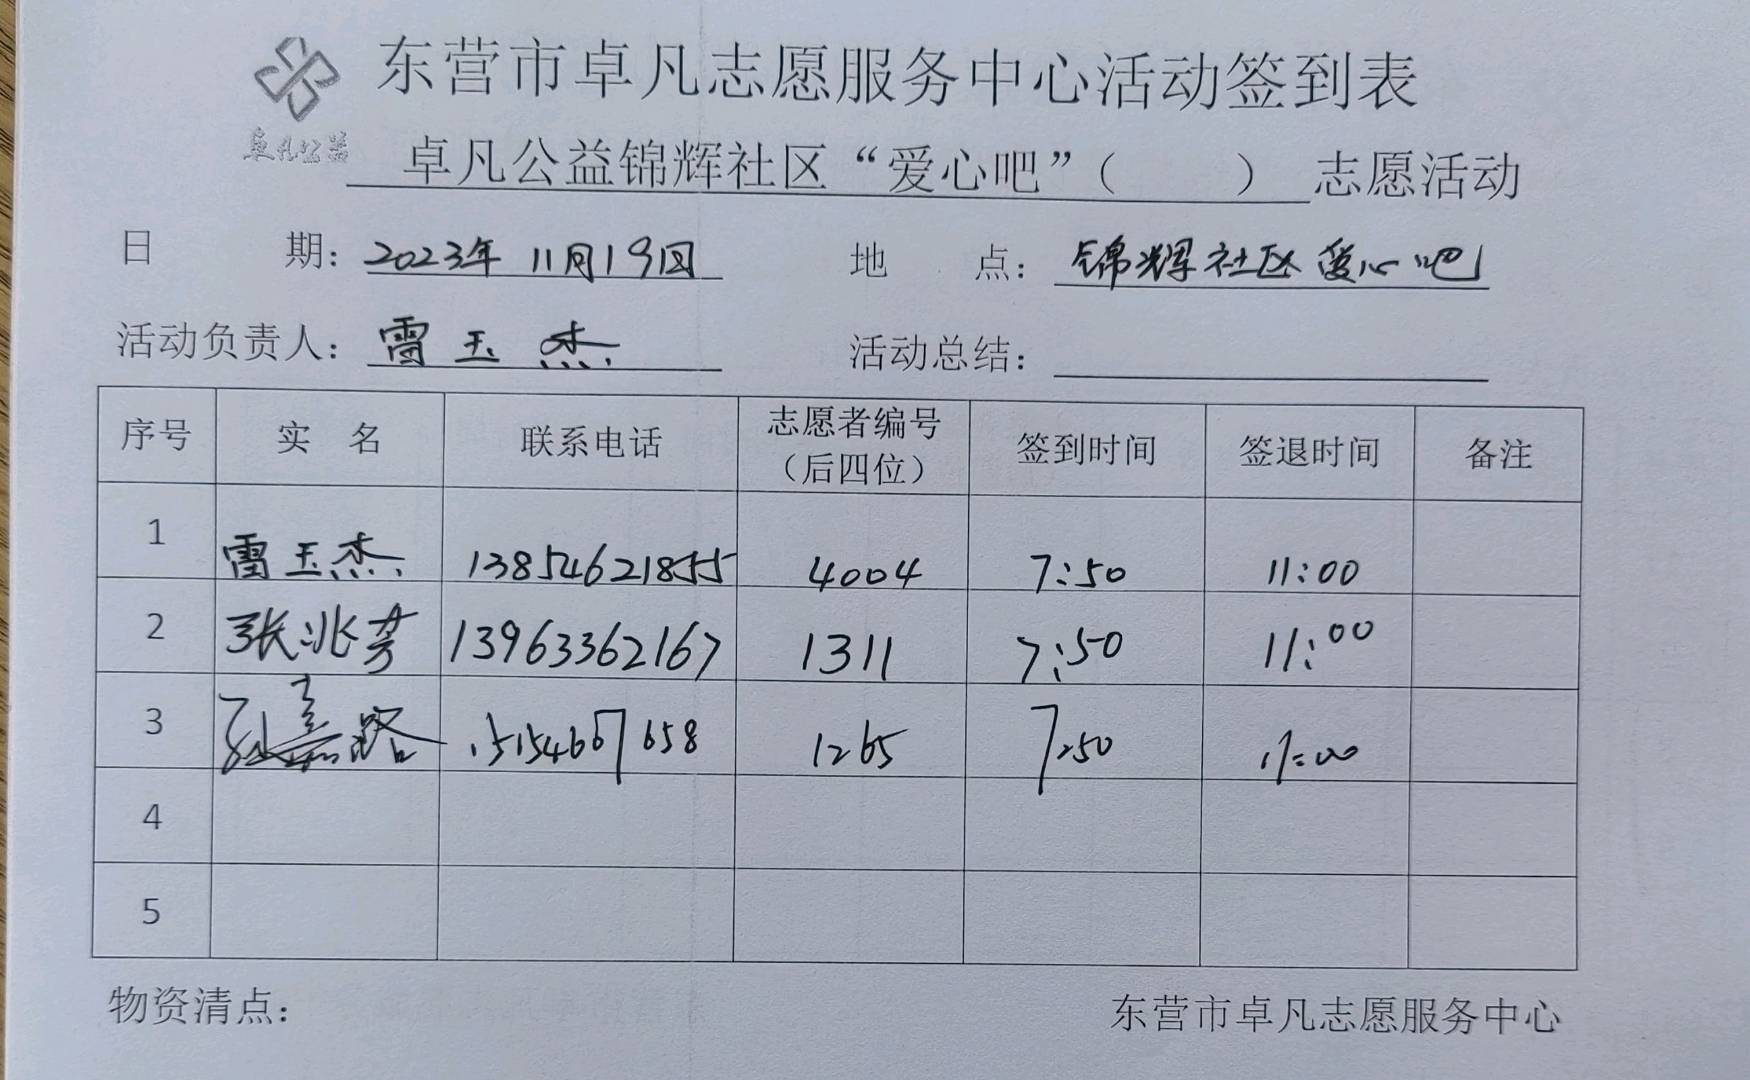 东营市卓凡志愿服务中心活动签到表
卓凡公益
卓凡公益锦辉社区“爱心吧”（ ）志愿活动
日 期：2023年11月19日 地 点：锦辉社区爱心吧
活动负责人：雷玉杰 活动总结：
序号 实 名 联系电话 志愿者编号（后四位） 签到时间 签退时间 备注
1 雷玉杰 13854621855 4004 7:50 11:00
2 张兆芳 13963362167 1311 7:50 11:00
3 孙嘉路 15154667658 1265 7:50 11:00
4
5
物资清点： 东营市卓凡志愿服务中心